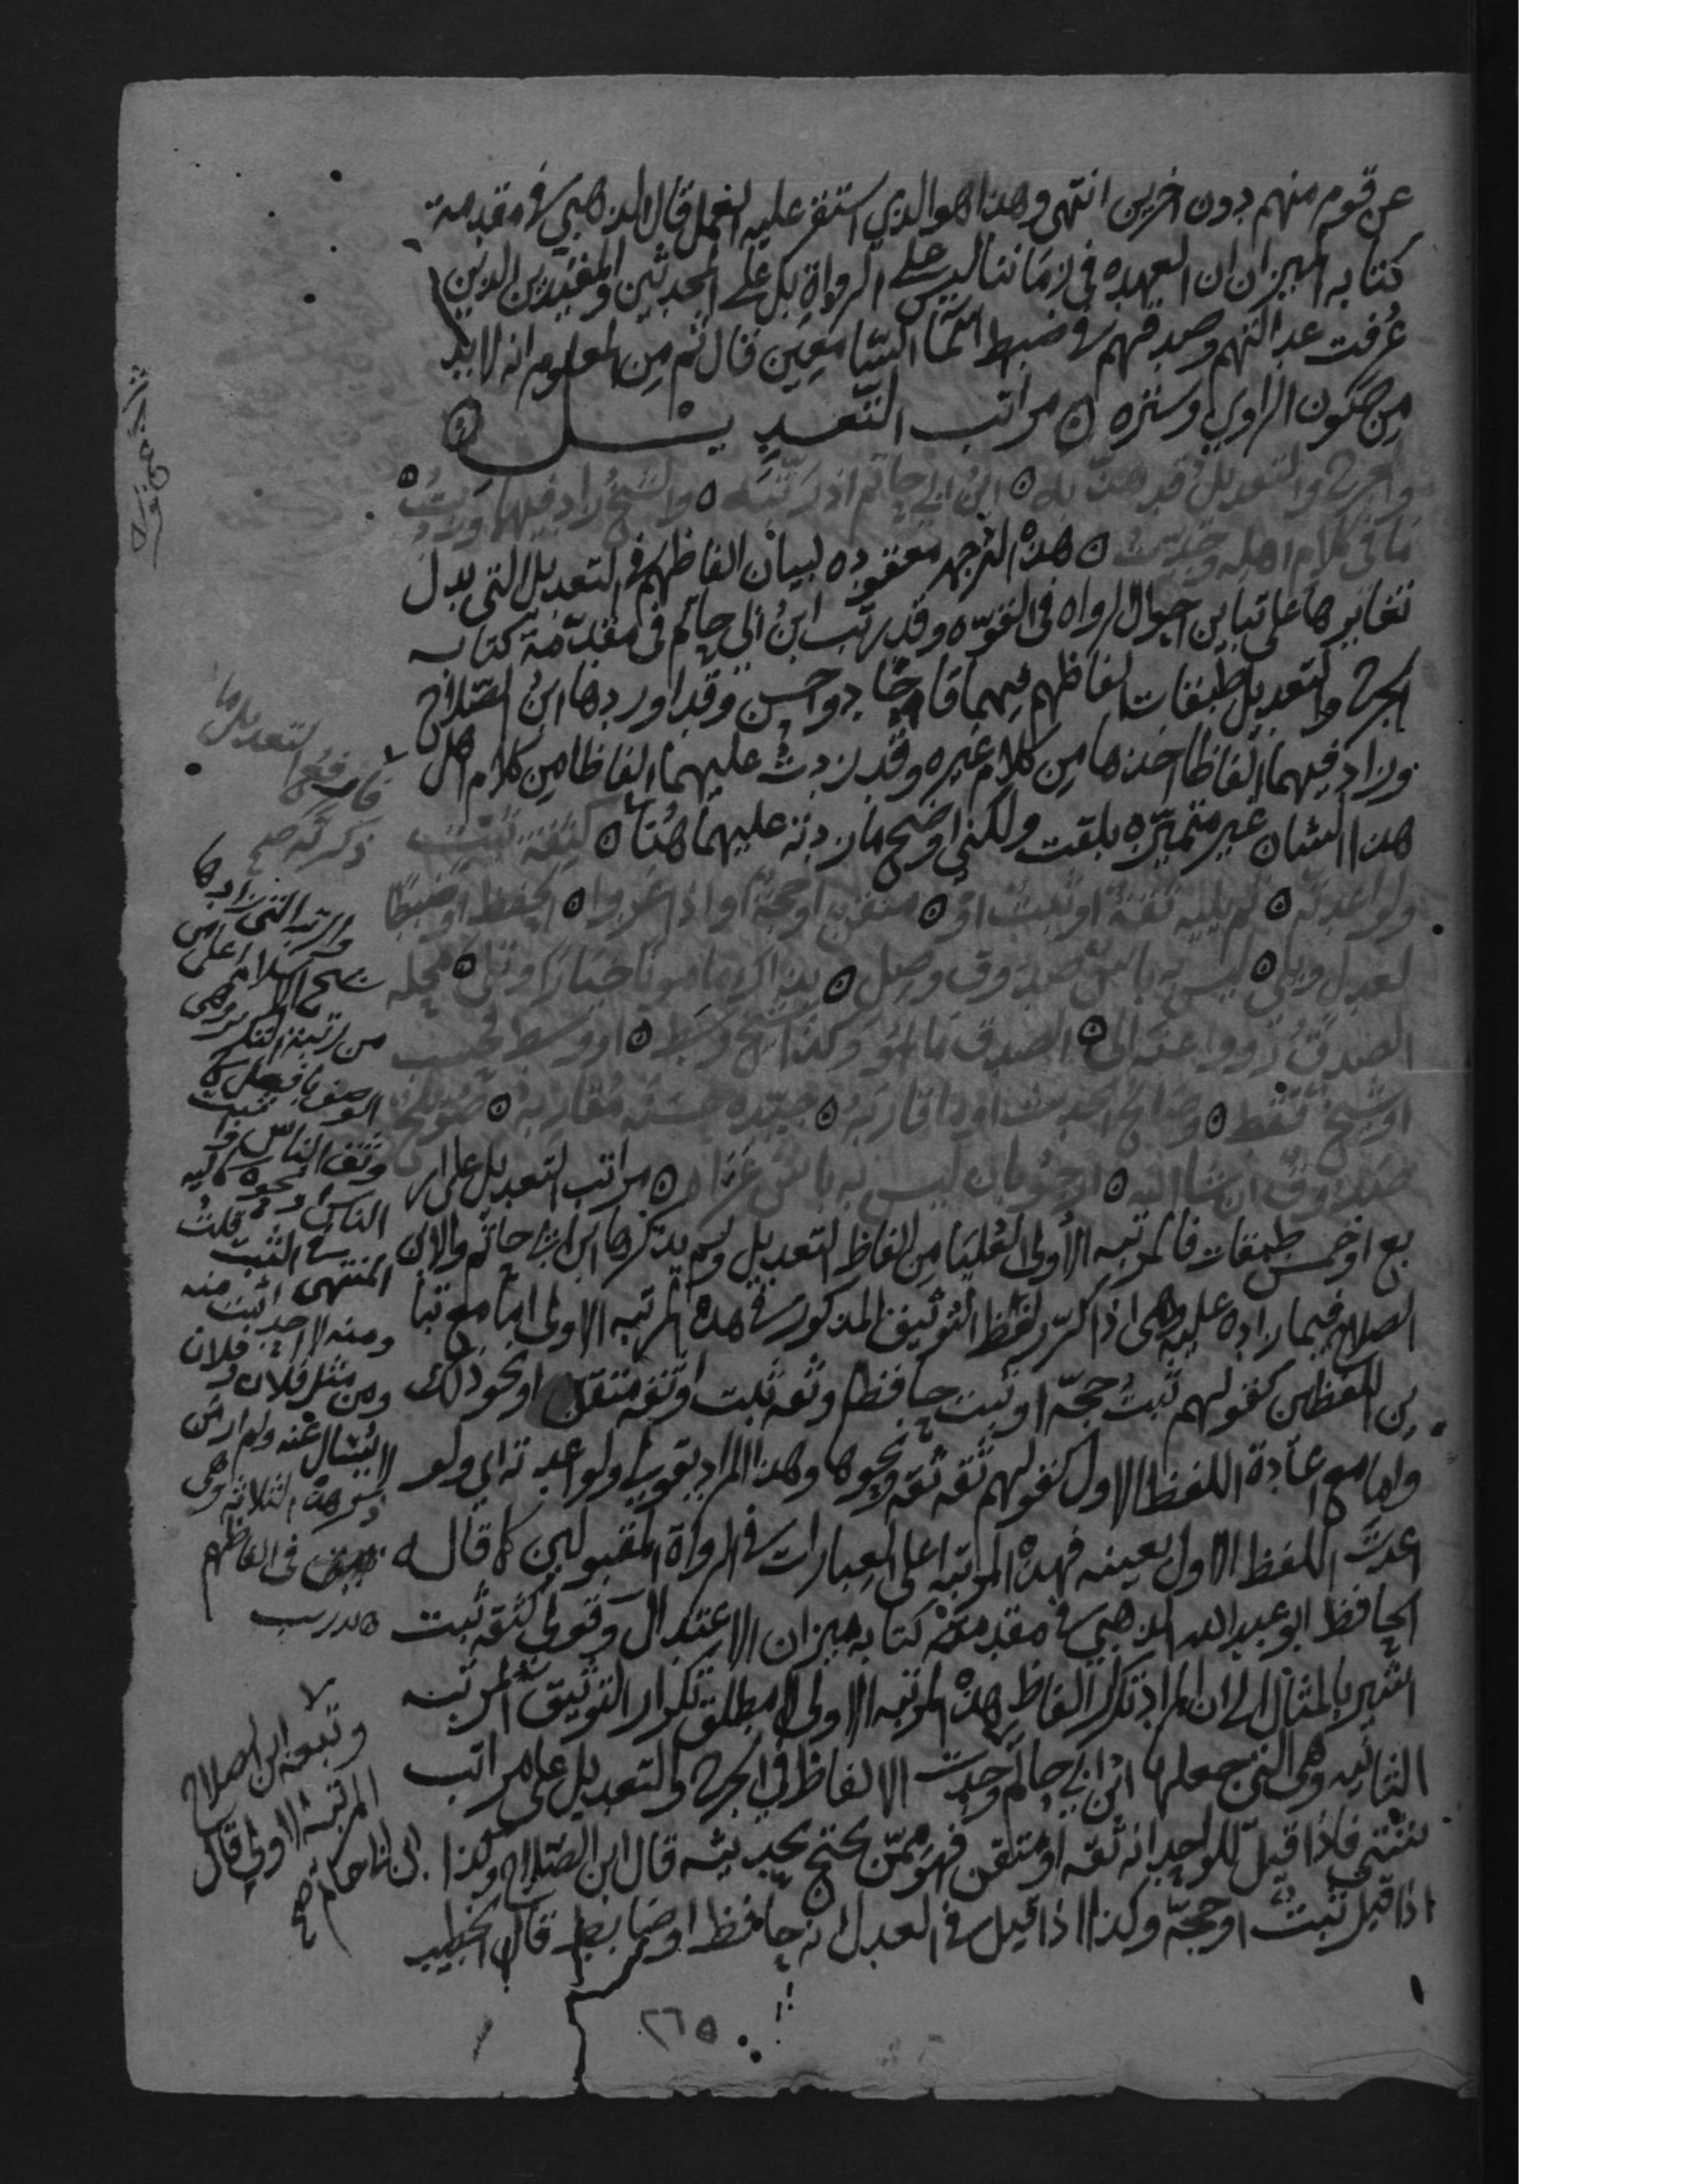 عن قوم منهم دون اخرين انتهى وهذا هو الذي استقر عليه العمل قال الذهبي في مقدمة
كتابه الميزان ان العهده في زماننا ليس على الرواة بل على المحدثين والمفيدين الذين
عرفت عدالتهم وصدقهم في ضبط اسما السامعين قال ثم من المعلوم انه لا بد
من صون الراوي وستره مراتب التعديل
والجرح والتعديل قد هذبه ابن ابي حاتم اذ رتبه والشيخ زاد فيهما وزدت
ما في كلام اهله وجدت هذه الترجمه معقوده لبيان الفاظهم في التعديل التي يدل
تغايرها على تباين احوال الرواه في القوه وقد رتب ابن ابي حاتم في مقدمة كتابه
الجرح والتعديل طبقات الفاظهم فيهما فاجاد واحسن وقد اوردها ابن الصلاح
وزاد فيهما الفاظا اخذها من كلام غيره وقد زدت عليهما الفاظا من كلام اهل
هذا الشان غير متميزه بلقت ولكني اوضح ما زدته عليهما هنا كثقة ثبت
ولو اعدته ثم يليه ثقة او ثبت او متقن او حجة او اذا عزوا الحفظ او ضبطا
لعدل ويلي ليس به باس صدوق وصل بذاك مامونا خيارا وتلى محله
الصدق رووا عنه الى الصدق ما هو وكذا شيخ وسط او وسط فحسب
او شيخ فقط وصالح الحديث او مقاربه جيده حسنه مقاربه صويلح
صدوق ان شا الله ارجو بان ليس به باس عراه مراتب التعديل على ار
بع او خمس طبقات فالمرتبه الاولى العليا من الفاظ التعديل ولم يذكرها ابن ابي حاتم ولا ابن
الصلاح فيما زاده عليه وهي اذا كرر لفظ التوثيق المذكور في هذه المرتبه الاولى اما مع تبا
ين اللفظين كقولهم ثبت حجة او ثبت حافظ او ثقه ثبت او ثقه متقن او نحو ذلك
واما مع اعادة اللفظ الاول كقولهم ثقه ثقه ونحوها وهذا المراد بقولي ولو اعدته اي ولو
اعدت اللفظ الاول بعينه فهذه المرتبه اعلى العبارات في الرواة المقبولين كما قاله
الحافظ ابو عبد الله الذهبي في مقدمة كتابه ميزان الاعتدال وقولي كثقه ثبت
اشير بالمثال الى ان المراد تكرر الفاظ هذه المرتبه الاولى لا مطلق تكرار التوثيق المرتبه
الثانيه وهي التي جعلها ابن ابي حاتم وجدت الالفاظ في الجرح والتعديل على مراتب
شتى فاذا قيل للواحد انه ثقه او متقن فهو ممن يحتج بحديثه قال ابن الصلاح وكذا
اذا قيل ثبت او حجة وكذا اذا قيل في العدل انه حافظ او ضابط قال الخطيب
٢٦٥
فارفعها التعديل ما
ذكرته صح
والرتبه التي زادها
شيخ الاسلام اعلى
من رتبة التكرير وهي
الوصف بافعل كا
وثق الناس واثبت
الناس ونحوه كاليه
المنتهى في الثبت قلت
ومنه لا احد اثبت منه
ومن مثل فلان وفلان
لا يسال عنه ولم ار من
ذكر هذه الثلاثه وهي
في الفاظهم
تدريب
وتبعه ابن الصلاح
المرتبة الاولى قال
صح